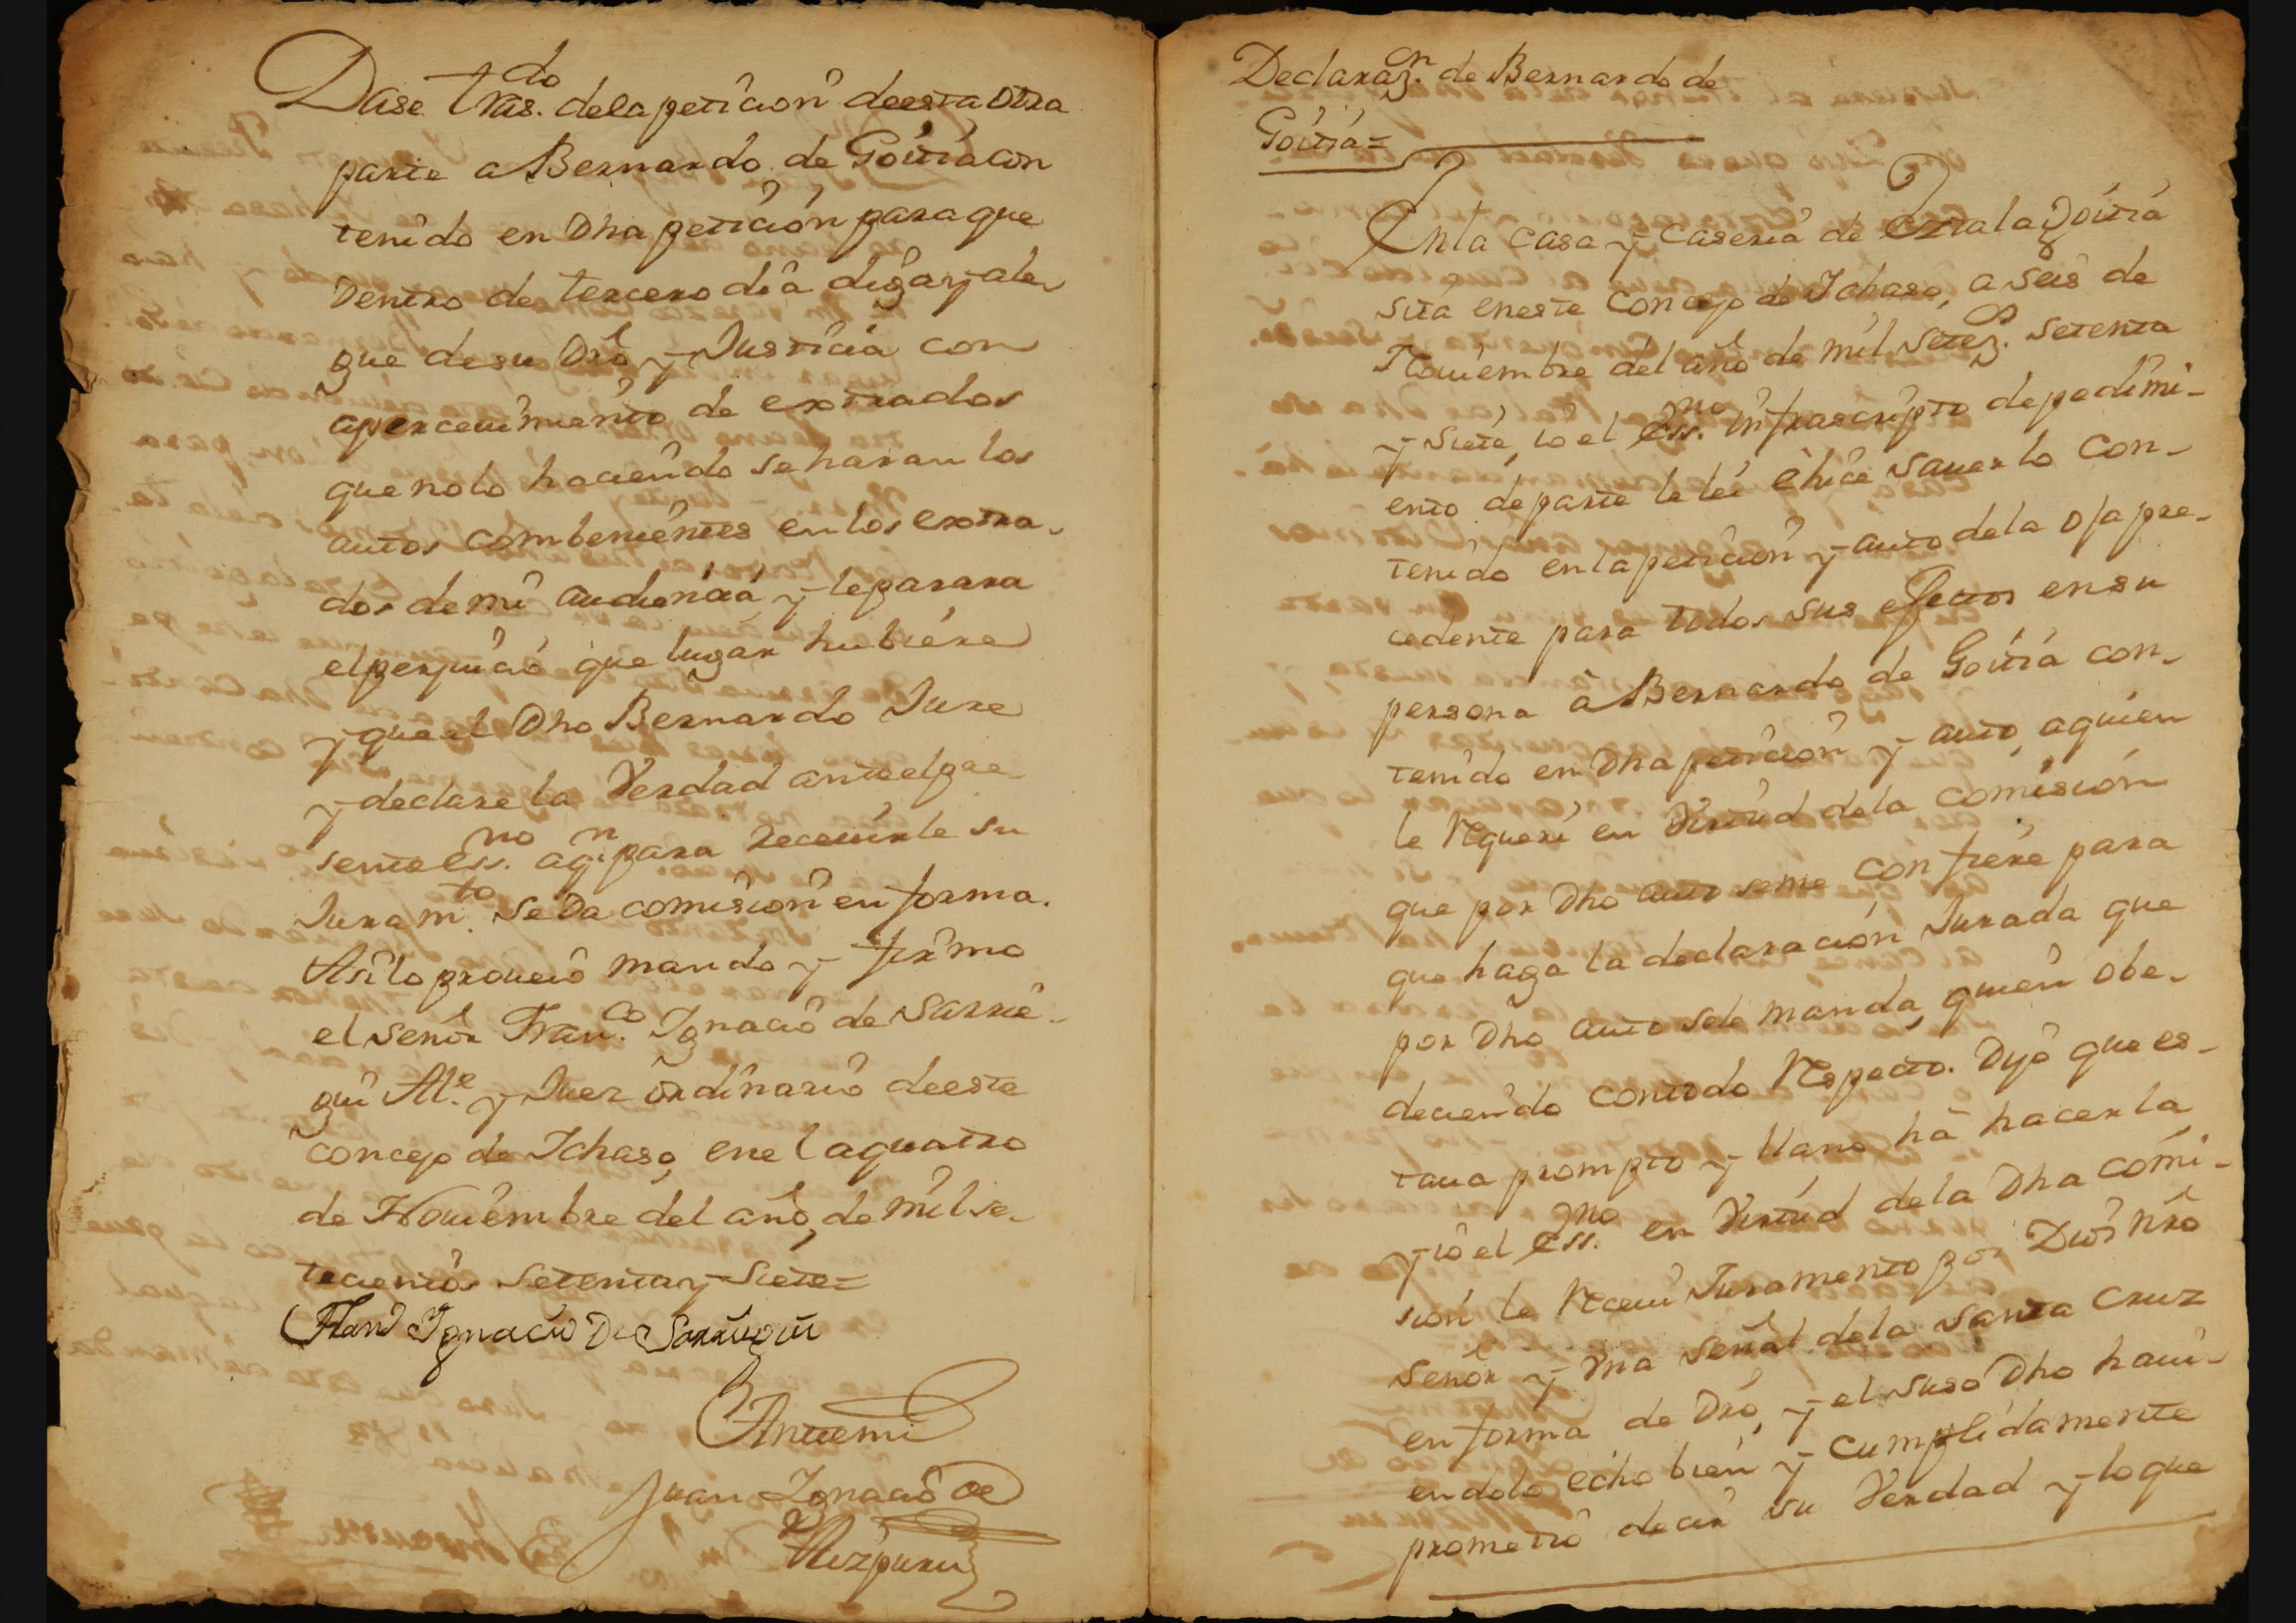 Dase tras.do dela peticion deesta otra
parte a Bernardo de Goitia con
tenido en Dha peticion para que
Dentro de tercero dia diga y ale
gue de su Dro y Justicia con
apercevimiento de extrados
que nolo haciendo se haran los
autos combenientes en los extra-
dos de mi audiencia y leparara
elperjuicio que lugar hubiere
y que el Dho Bernardo Jure
y declare la Verdad anteelpre
senteess.no aq.n para Recevirle su
Juram.to se Da comision en forma.
Asilo proveio mando y firmo
el señor Fran.co Ignacio de Sarrie-
gui Al.e y Juez ordinario deeste
concejo de Ichaso, enel aquatro
de Noviembre del año de mil se-
tecientos setenta y siete=
Fran.co Ignacio De Sarriegui
Antemi
Juan Ignacio de
Aizpuru
Declaraz.on de Bernardo de
Goitia=
Enla casa y caseria de Eztala goitia
sita eneste concejo de Ichaso, a seis de
Noviembre del año de mil setez.s setenta
y siete, io el ess.no infrascripto depedimi-
ento departe le lei è hice saver lo con-
tenido en la peticion y auto dela oja pre-
cedente para todos sus efectos ensu
persona à Bernardo de Goitia con-
tenido en Dha peticion y auto, aquien
le Requeri en Virtud dela comision
que por Dho auto seme confiere para
que haga la declaracion Jurada que
por Dho auto sele manda, quien obe-
deciendo contodo Respecto. Dijo que es-
tava prompto y llano hà hacerla,
y io el ess.no en Virtud dela Dha comi-
sion le Recevi Juramento por Dios nro
señor y Una señal dela santa Cruz
en forma de Dro, y el suso Dho havi-
endolo echo bien y cumplidamente
prometio decir su Verdad y loque